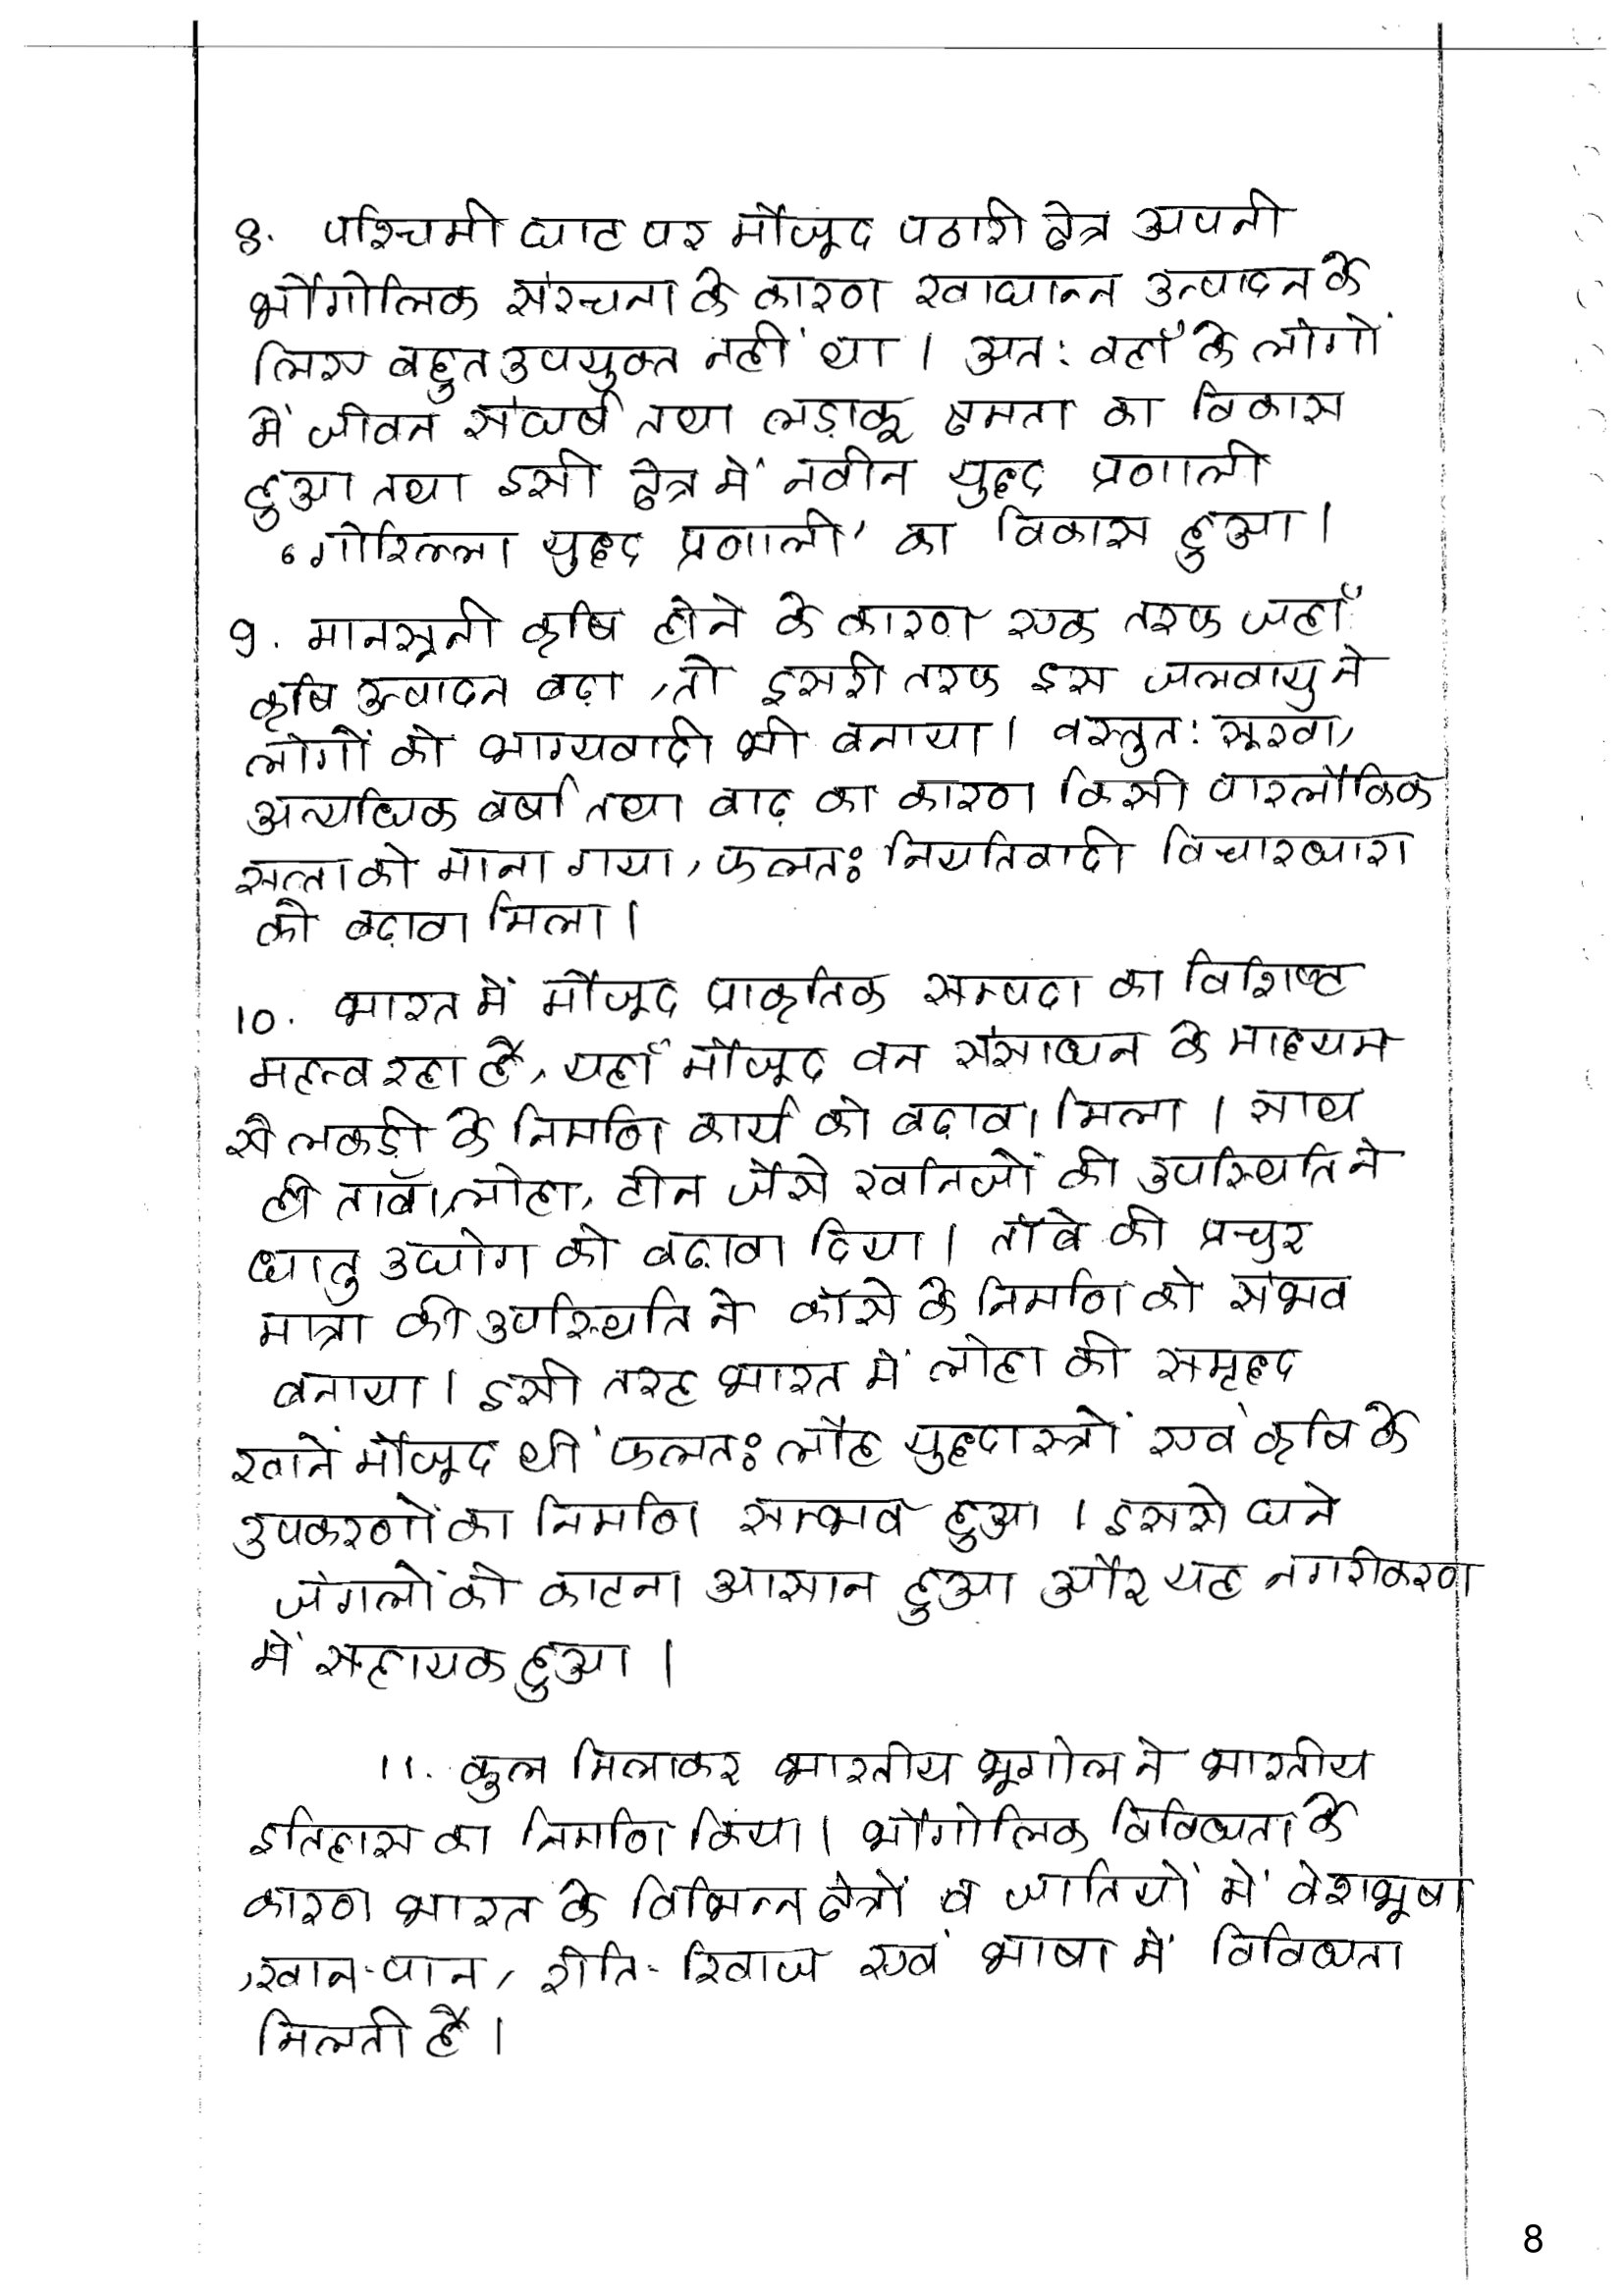 8. पश्चिमी घाट पर मौजूद पठारी क्षेत्र अपनी
भौगोलिक संरचना के कारण खाद्यान्न उत्पादन के
लिए बहुत उपयुक्त नहीं था। अत: वहाँ के लोगों
में जीवन संघर्ष तथा लड़ाकू क्षमता का विकास
हुआ तथा इसी क्षेत्र में नवीन युद्ध प्रणाली
'गोरिल्ला युद्ध प्रणाली' का विकास हुआ।
9. मानसूनी कृषि होने के कारण एक तरफ जहाँ
कृषि उत्पादन बढ़ा, तो दूसरी तरफ इस जलवायु ने
लोगों को भाग्यवादी भी बनाया। वस्तुत: सूखा,
अत्यधिक वर्षा तथा बाढ़ का कारण किसी पारलौकिक
सत्ता को माना गया, फलतः नियतिवादी विचारधारा
को बढ़ावा मिला।
10. भारत में मौजूद प्राकृतिक सम्पदा का विशिष्ट
महत्व रहा है, यहाँ मौजूद वन संसाधन के माध्यम
से लकड़ी के निर्माण कार्य को बढ़ावा मिला। साथ
ही ताँबा, लोहा, टीन जैसे खनिजों की उपस्थिति ने
धातु उद्योग को बढ़ावा दिया। ताँबे की प्रचुर
मात्रा की उपस्थिति ने काँसे के निर्माण को संभव
बनाया। इसी तरह भारत में लोहा की समृद्ध
खानें मौजूद थीं फलतः लौह युद्धास्त्रों एवं कृषि के
उपकरणों का निर्माण सम्भव हुआ। इससे घने
जंगलों को काटना आसान हुआ और यह नगरीकरण
में सहायक हुआ।
11. कुल मिलाकर भारतीय भूगोल ने भारतीय
इतिहास का निर्माण किया। भौगोलिक विविधता के
कारण भारत के विभिन्न क्षेत्रों व जातियों में वेशभूषा
,खान-पान, रीति-रिवाज एवं भाषा में विविधता
मिलती है।
8